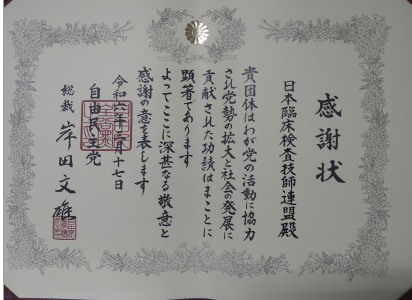 感謝状
日本臨床検査技師連盟殿
貴団体はわが党の活動に協力
され党勢の拡大と社会の発展に
貢献された功績はまことに
顕著であります
よってここに深甚なる敬意と
感謝の意を表します
令和六年三月十七日
自由民主党
総裁 岸田文雄